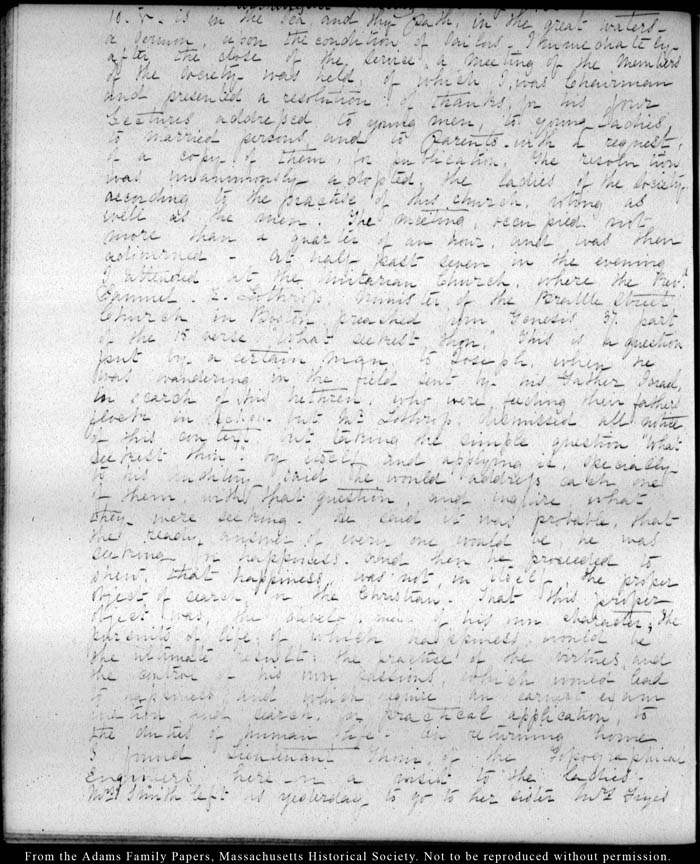 10. V. is in the sea, and thy path, in the great waters-
a Sermon, upon the condition of Sailors- Immediately
after the close of the service, a meeting of the members
of the Society was held, of which I was Chairman
and presented a resolution of thanks, for his four
Lectures addressed to young men, to young Ladies,
to married persons, and to Parents with a request,
of a copy of them, for publication. The resolution
was unanimously adopted, the ladies of the Society
according to the practise of this church, voting as
well as the men. The meeting, occupied not
more than a quarter of an hour, and was then
adjourned- At half past seven in the evening
I attended at the Unitarian Church, where the Revd
Samuel. K. Lothrop, Minister of the Brattle Street
Church in Boston preached from Genesis 37. part
of the 15 verse, "What seekest thou," This is a question
put by a certain man, to Joseph, when he
was wandering in the field sent by his Father Israel,
in search of his brethren, who were feeding their fathers
flock in but Mr Lothrop, dismissed all notice
of this context, but taking the simple question "What
seekest thou" by itself and applying it, specially
to his auditory said he would address each one
of them, with that question, and inquire what
they were seeking. He said it was probable, that
the ready answer of every one would be, he was
seeking for happiness. and then he proceeded to
shew, that happiness, was not, in itself, the proper
object of search, for the Christian- That his proper
object was, the of his own character, the
pursuits of life, of which happiness would be
the ultimate result; the practise of the virtues, and
the control of his own passions, which would lead
to happiness, and which require an earnest exam
ination and search, for practical application, to
the duties of human life- On returning home
I found Lieutenant Thom, of the Topographical
Engineers here on a visit to the ladies-
Mrs Smith left us yesterday to go to her sister Mrs Frye's
From the Adams Family Papers, Massachusetts Historical Society. Not to be reproduced without permission.